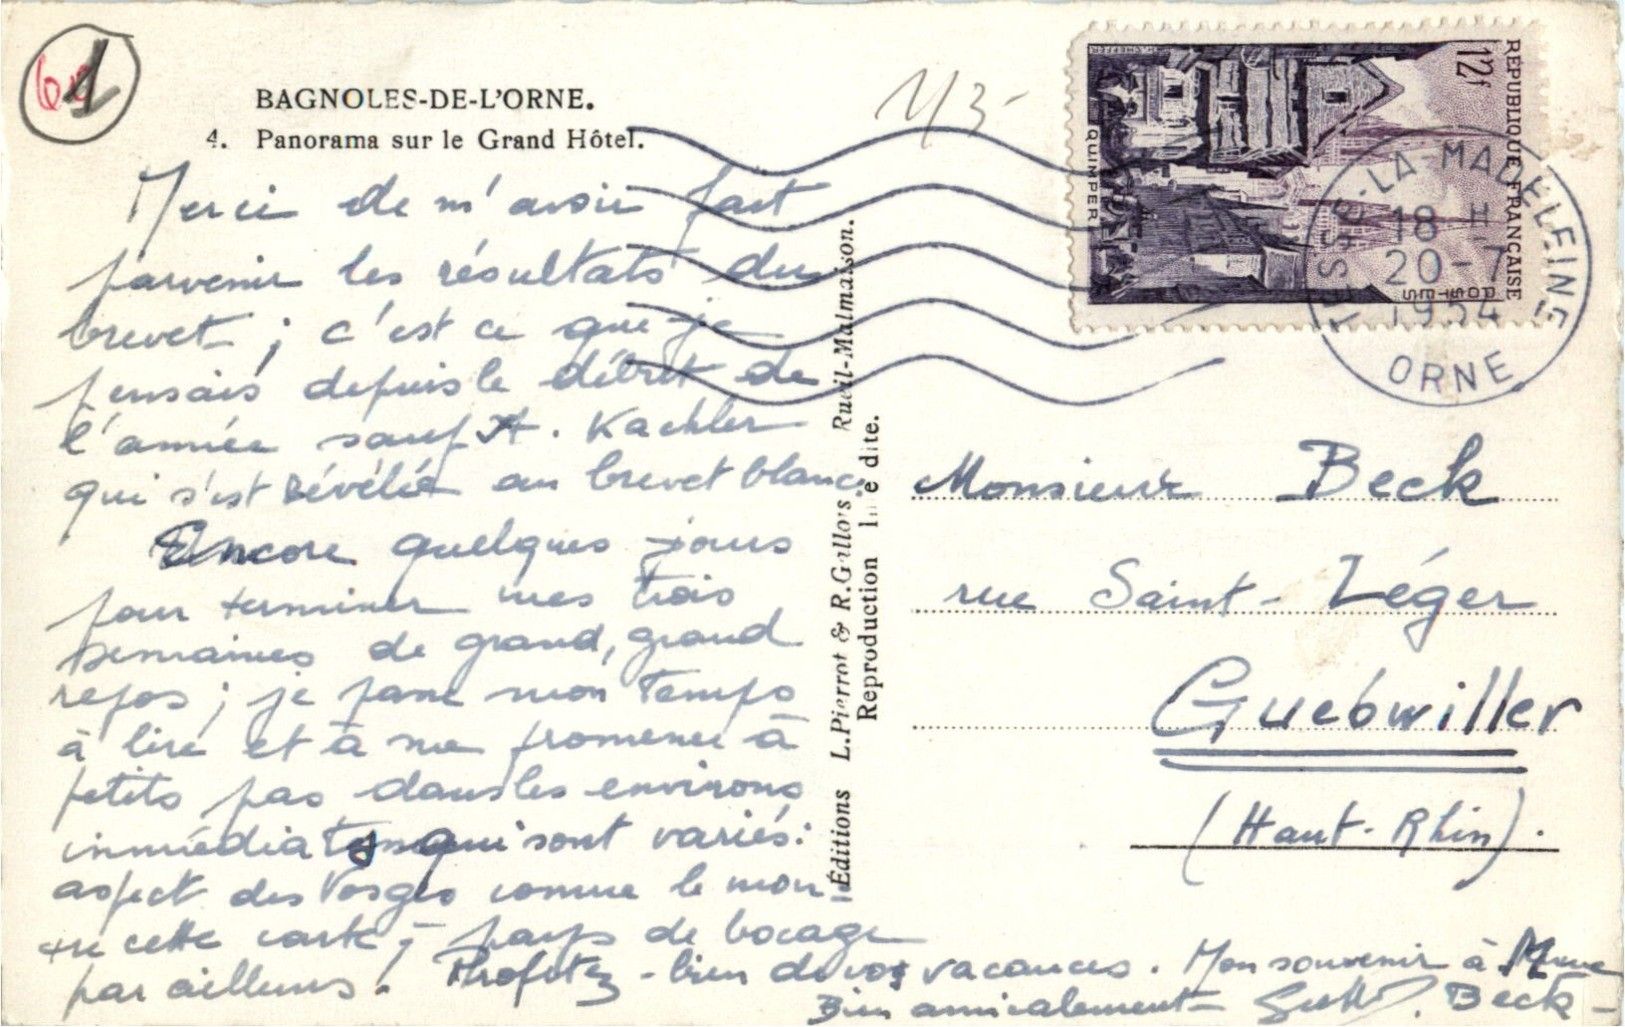 BAGNOLES-DE-L'ORNE.
4. Panorama sur le Grand Hôtel.
Merci de m'avoir fait
parvenir les résultats du
brevet ; c'est ce que je
pensais depuis le début de
l'année sauf A. Kachler
qui s'est révélée au brevet blanc
Encore quelques jours
pour terminer mes trois
semaines de grand, grand
repos ; je passe mon temps
à lire et à me promener à
petits pas dans les environs
immédiats qui sont variés :
aspect des Vosges comme le mon-
tre cette carte ; pays de bocage
par ailleurs. Profitez-bien de vos vacances. Mon souvenir à Mme
Bien amicalement Beck-
Éditions L. Pierrot & R. Gillois Rueil-Malmaison.
Reproduction Interdite.
113-
1
REPUBLIQUE FRANÇAISE
12f
POSTES
QUIMPER
TESSE-LA-MADELEINE
18 H
20-7
1954
ORNE
Monsieur Beck
rue Saint-Léger
Guebwiller
(Haut-Rhin).